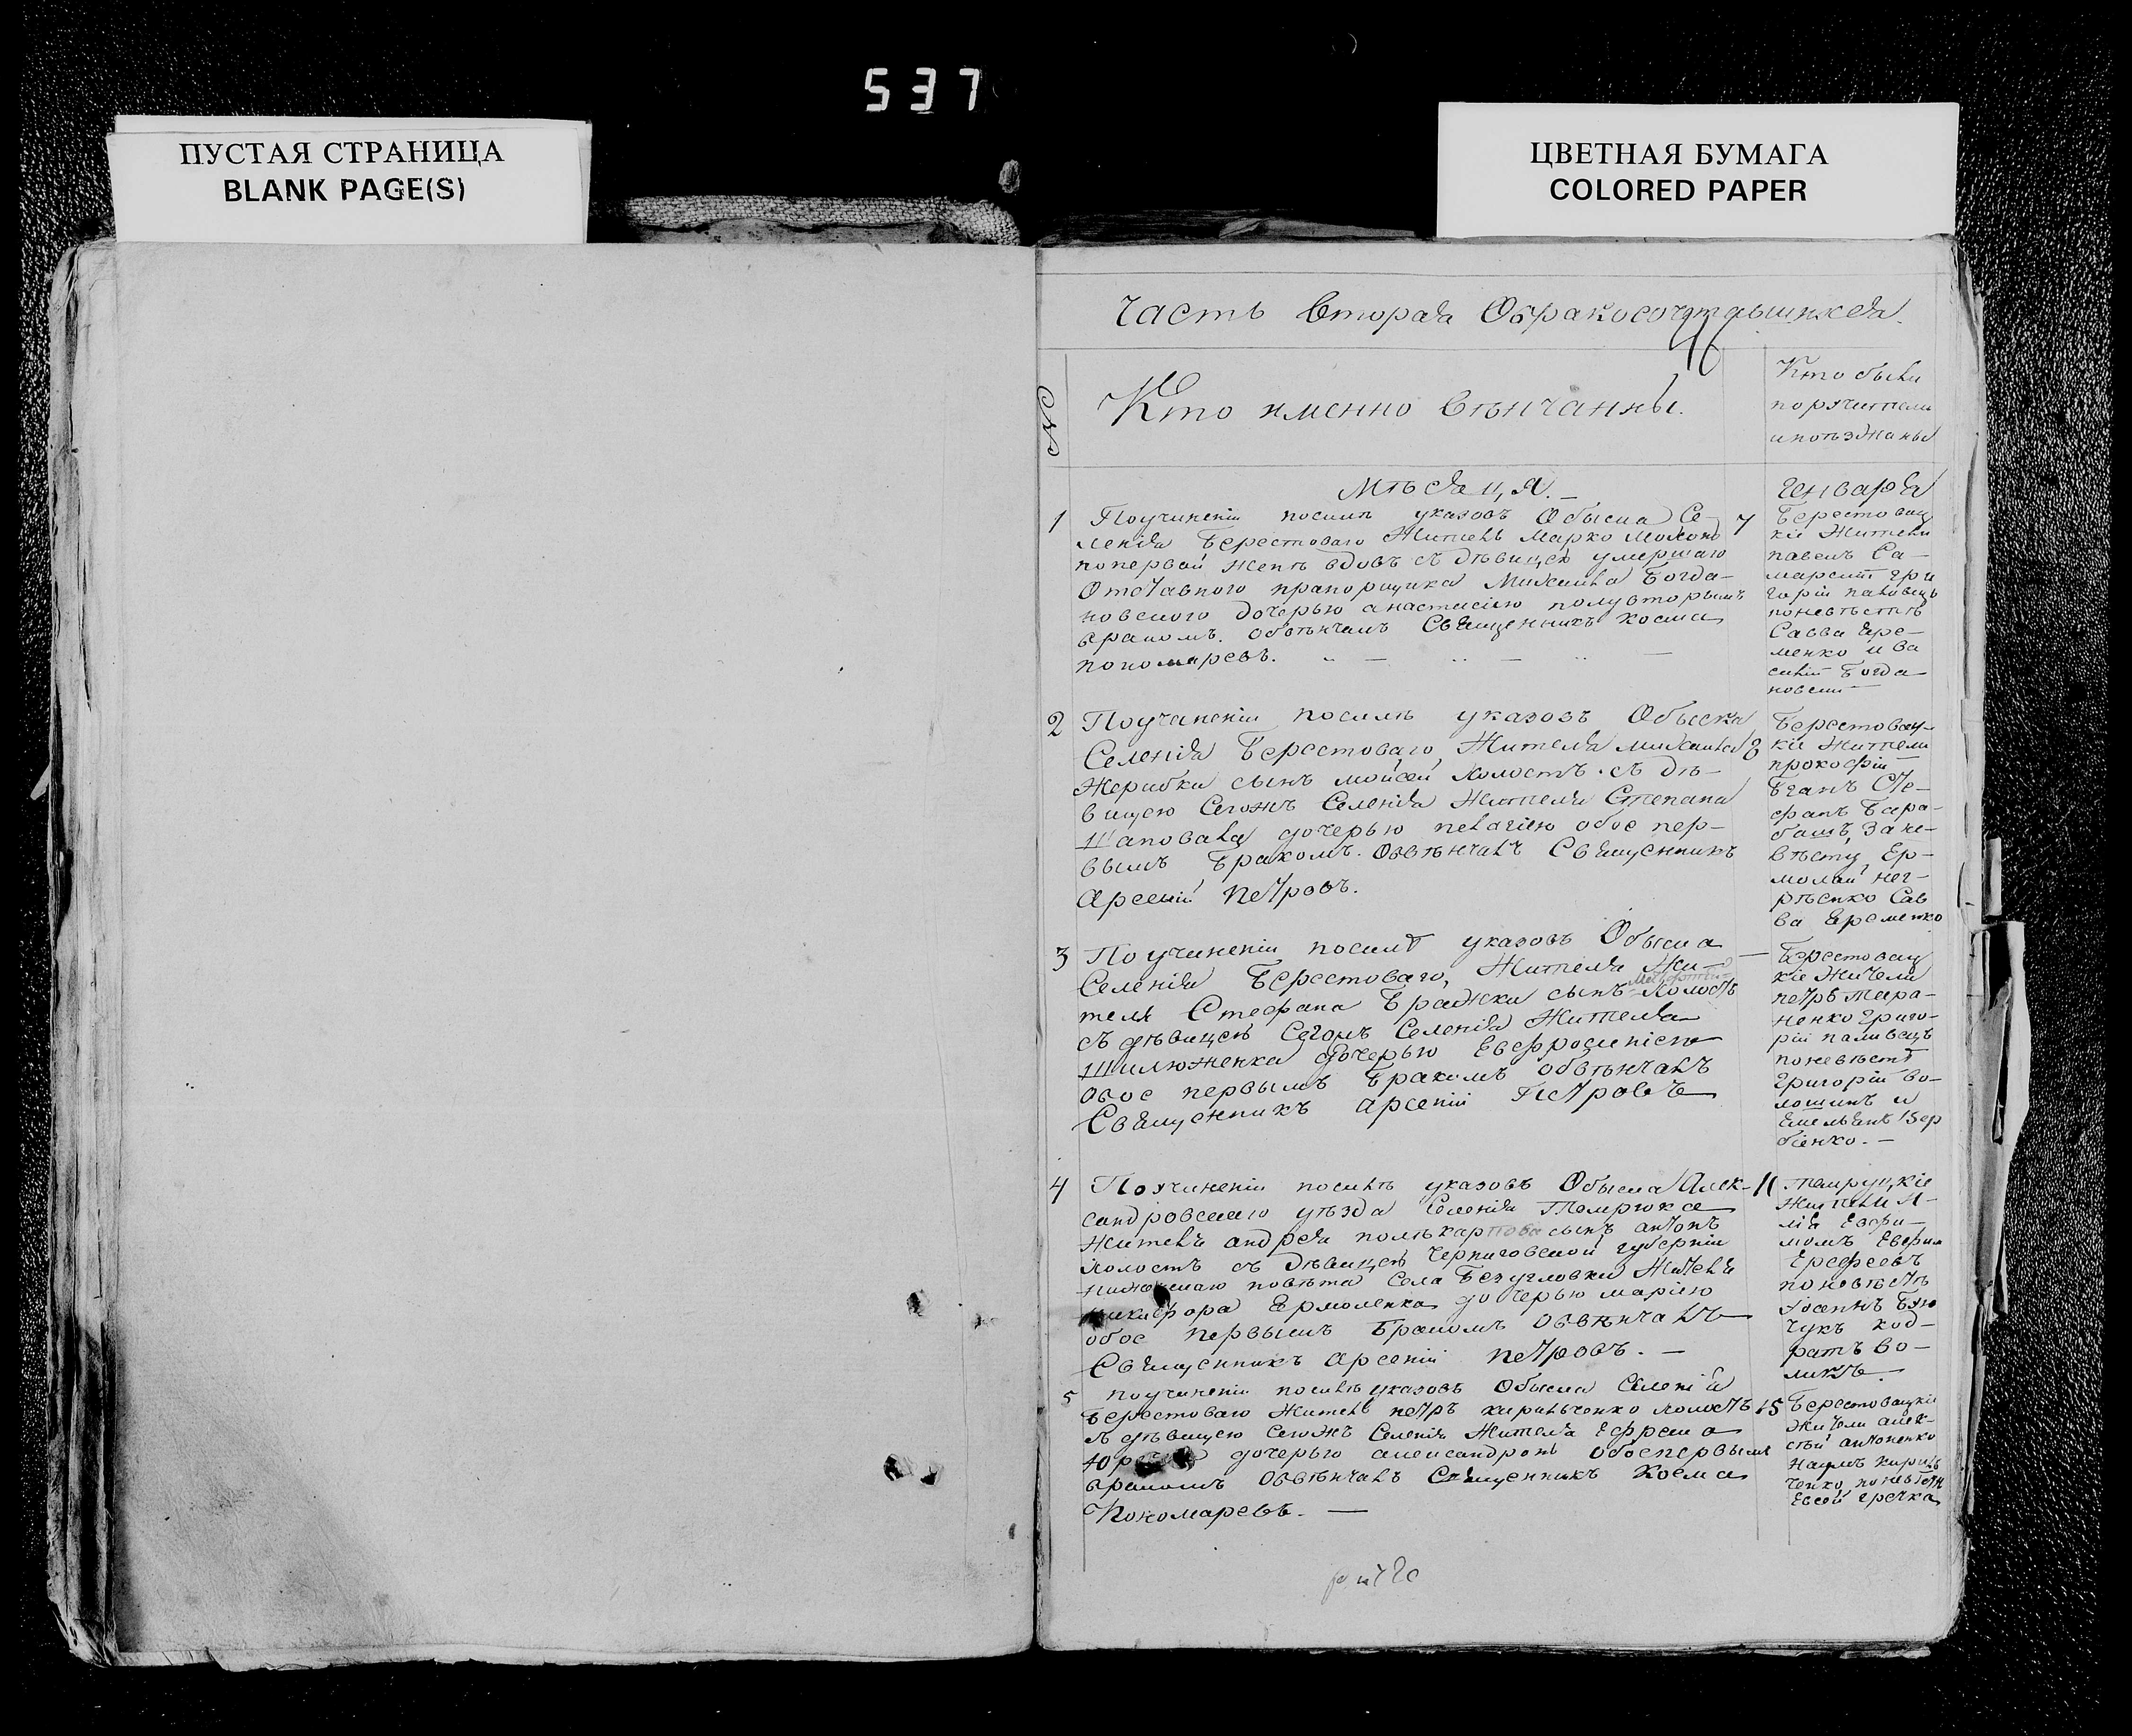 537
ПУСТАЯ СТРАНИЦА
BLANK PAGE(S)
ЦВЕТНАЯ БУМАГА
COLORED PAPER
Часть вторая Обракосочетавшихся
№
Кто именно вѣнчанны.
Кто были
поручители
ипоѣзжаны
Мѣсяця.
Генваря
1 Поучиненіи посилѣ указовъ Обыска Се-
ленія Берестоваго Житель Марко
попервой женѣ вдовъ съ дѣвицею умершаго
Отставного прапорщика Михаила Богда-
новского дочерью анастасіею полувторымъ
бракомъ. обвѣнчалъ Священникъ Косма
пономаревъ.
7
Берестовец
кіе Жители
павелъ Са-
марскій Гри
горій паловецъ
поневѣстѣ
Савва Ере-
менко и Ва
силій Богда
новскій
2 Поучиненіи посилѣ указовъ Обыска
Селенія Берестоваго Жителя михаила
Жерибки сынъ мойсей холостъ съ дѣ-
вицею Сегожъ Селенія Жителя Степана
Шаповала дочерью пелагіею обое пер-
вымъ Бракомъ. Обвѣнчалъ Священникъ
Арсеній Петровъ.
8
Берестовец-
кіе Жители
прокофій
Беганъ Сте-
фанъ Бара-
башъ, Зане-
вѣсту Ер-
молай нег-
рѣенко Сав
ва Еременко
3 Поучиненіи посилѣ указовъ Обыска
Селенія Берестоваго, Жителя Жи-
теля Стефана Бражки сынъ холостъ
съ дѣвицею Сегожъ Селенія Жителя
Шилюженка дочерью Евфросиніею
Обое первымъ Бракомъ обвѣнчалъ
Священникъ арсеній Петровъ
—
Берестовец
кіе Жители
петръ
ненко Григо-
рій паливецъ
поневѣстѣ
Григорій Во-
лошинъ и
Емельянъ Вер
біенко. —
4 Поучиненіи посилѣ указовъ Обыска Алек-
сандровскаго уѣзда Селенія Темрюка
Житель андрея поликарпова сынъ антонъ
холостъ съ Дѣвицею Черниговской губерніи
повѣта Села Безугловки Жителя
никифора Ермоленка дочерью маріею
обое первымъ Бракомъ Обвѣнчалъ
Священникъ Арсеній Петровъ. —
11
темруцкіе
Жители И-
лія Евфи-
момъ Евфим
Ерефеевъ
поневѣстѣ
іосипъ Бую
чукъ код-
ратъ Во-
ликъ.
5 поучиненіи посилѣ указовъ Обыска Селенія
Берестоваго Житель петръ кирильченко холостъ
съ дѣвицею Сегожъ Селенія Жителя Ефрема
дочерью александрою обоепервымъ
бракомъ Обвѣнчалъ Священникъ Косма
Пономаревъ. —
15
Берестовецкіе
Жители алек-
сѣй антоненко
наумъ кириль
ченко поневѣстѣ
Евсей гречка